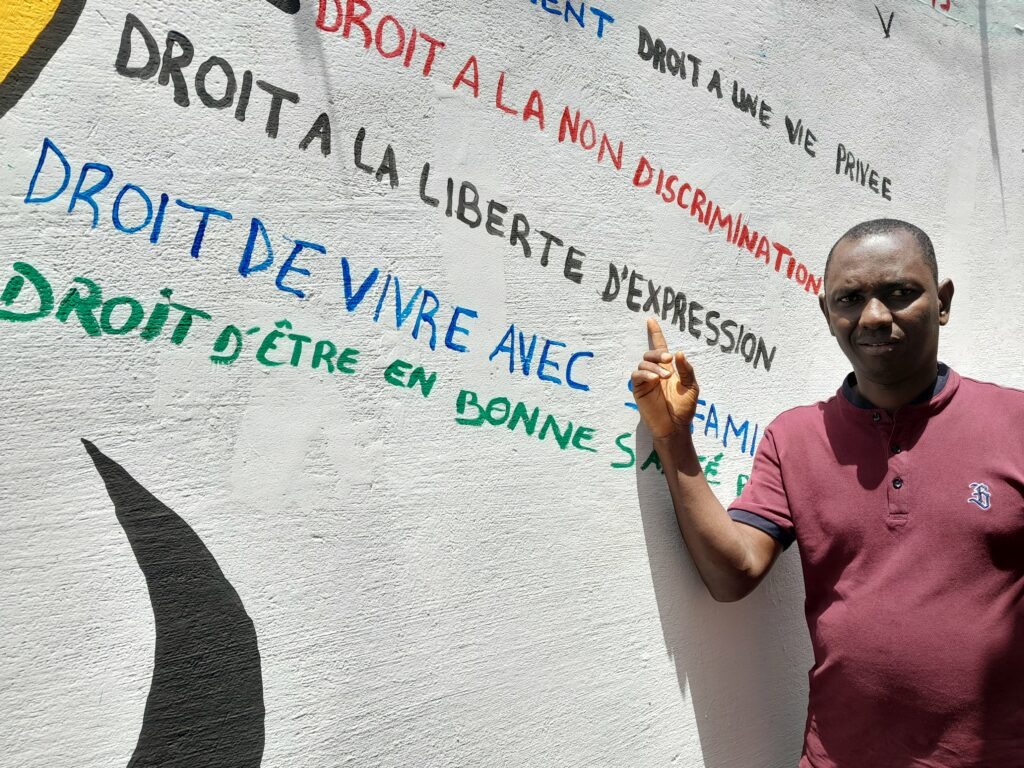 DROIT A UNE VIE PRIVEE
DROIT A LA NON DISCRIMINATION
DROIT A LA LIBERTE D'EXPRESSION
DROIT DE VIVRE AVEC
DROIT D'ÊTRE EN BONNE SANTÉ